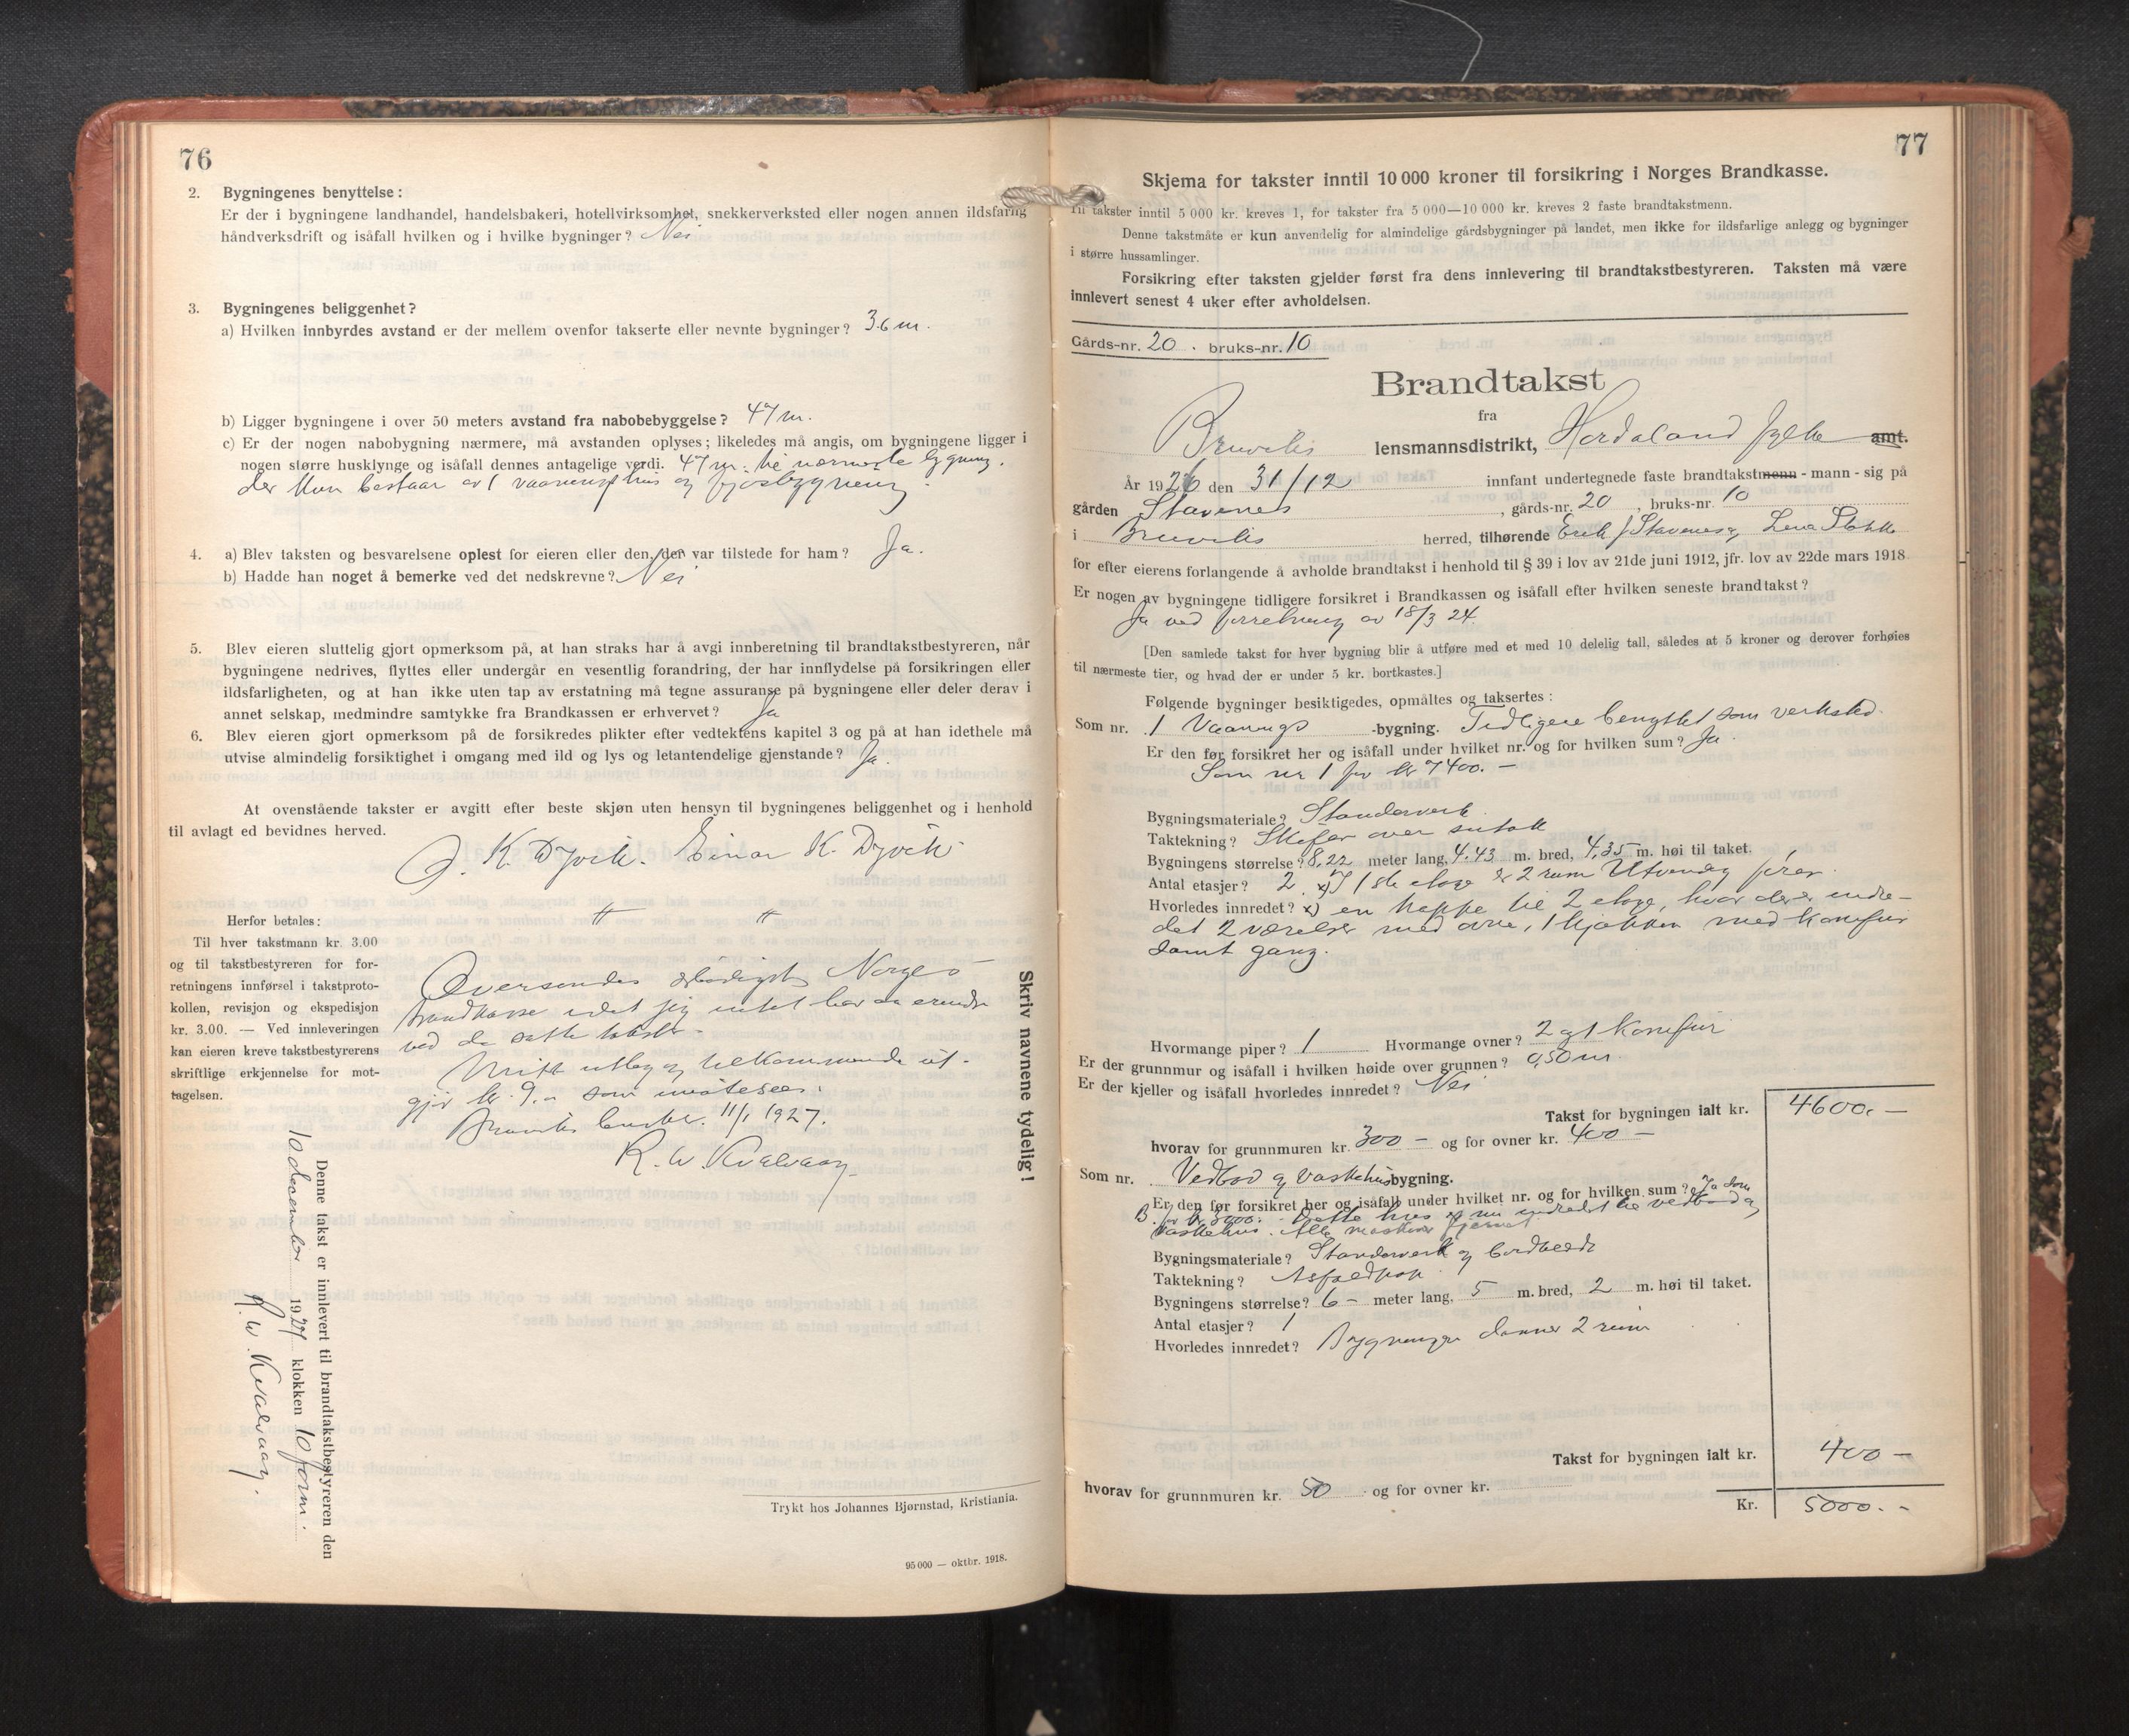 76
2. Bygningenes benyttelse:
Er der i bygningene landhandel, handelsbakeri, hotellvirksomhet, snekkerverksted eller nogen annen ildsfarlig
håndverksdrift og isåfall hvilken og i hvilke bygninger? Nei
3. Bygningenes beliggenhet?
a) Hvilken innbyrdes avstand er der mellem ovenfor takserte eller nevnte bygninger? 36 m.
b) Ligger bygningene i over 50 meters avstand fra nabobebyggelse? 47 m.
c) Er der nogen nabobygning nærmere, må avstanden oplyses; likeledes må angis, om bygningene ligger i
nogen større husklynge og isåfall dennes antagelige verdi. 47 m. til nærmeste bygning.
der kun bestaar av 1 vaaningshus og fjøsbygning.
4. a) Blev taksten og besvarelsene oplest for eieren eller den, der var tilstede for ham? Ja.
b) Hadde han noget å bemerke ved det nedskrevne? Nei
5. Blev eieren sluttelig gjort opmerksom på, at han straks har å avgi innberetning til brandtakstbestyreren, når
bygningene nedrives, flyttes eller undergår en vesentlig forandring, der har innflydelse på forsikringen eller
ildsfarligheten, og at han ikke uten tap av erstatning må tegne assuranse på bygningene eller deler derav i
annet selskap, medmindre samtykke fra Brandkassen er erhvervet? Ja
6. Blev eieren gjort opmerksom på de forsikredes plikter efter vedtektens kapitel 3 og på at han idethele må
utvise almindelig forsiktighet i omgang med ild og lys og letantendelige gjenstande? Ja.
At ovenstående takster er avgitt efter beste skjøn uten hensyn til bygningenes beliggenhet og i henhold
til avlagt ed bevidnes herved.
J. K. Dyvik. Einar K. Dyvik
Herfor betales:
Til hver takstmann kr. 3.00
og til takstbestyreren for for-
retningens innførsel i takstproto-
kollen, revisjon og ekspedisjon
kr. 3.00. — Ved innleveringen
kan eieren kreve takstbestyrerens
skriftlige erkjennelse for mot-
tagelsen.
Oversendes ærbødigst Norges
Brandkasse idet jeg intet har aa erindre
ved de satte takster.
Mitt utlæg og tilkommende ut-
gjør kr. 9.00 som imøtesees.
Bruviks lensktr. 11/1 1927.
R. W. Kvalvaag
Skriv navnene tydelig!
Denne takst er innlevert til brandtakstbestyreren den
10 desember 1927 klokken 10 form.
R. W. Kvalvaag.
Trykt hos Johannes Bjørnstad, Kristiania.
95 000 — oktbr. 1918.
77
Skjema for takster inntil 10 000 kroner til forsikring i Norges Brandkasse.
Til takster inntil 5 000 kr. kreves 1, for takster fra 5 000—10 000 kr. kreves 2 faste brandtakstmenn.
Denne takstmåte er kun anvendelig for almindelige gårdsbygninger på landet, men ikke for ildsfarlige anlegg og bygninger
i større hussamlinger.
Forsikring efter taksten gjelder først fra dens innlevering til brandtakstbestyreren. Taksten må være
innlevert senest 4 uker efter avholdelsen.
Gårds-nr. 20. bruks-nr. 10
Brandtakst
fra
Bruviks lensmannsdistrikt, Hordaland fylke amt.
År 1926 den 31/12 innfant undertegnede faste brandtakstmenn - mann - sig på
gården Stavenes, gårds-nr. 20, bruks-nr. 10
i Bruviks herred, tilhørende Erik J Stavenes og Lena
for efter eierens forlangende å avholde brandtakst i henhold til § 39 i lov av 21de juni 1912, jfr. lov av 22de mars 1918
Er nogen av bygningene tidligere forsikret i Brandkassen og isåfall efter hvilken seneste brandtakst?
Ja ved forretning av 18/3 24.
[Den samlede takst for hver bygning blir å utføre med et med 10 delelig tall, således at 5 kroner og derover forhøies
til nærmeste tier, og hvad der er under 5 kr. bortkastes.]
Følgende bygninger besiktigedes, opmåltes og taksertes:
Som nr. 1 Vaanings-bygning. Tidligere benyttet som verksted.
Er den før forsikret her og isåfall under hvilket nr. og for hvilken sum? Ja.
Som nr 1 for kr 7400.-
Bygningsmateriale? Standerverk
Taktekning? Skifer over sutak
Bygningens størrelse? 8,22 meter lang, 4.43 m. bred, 4,35 m. høi til taket.
Antal etasjer? 2. x) I 1ste etage er 2 rum Utvendig fører
Hvorledes innredet? x) en trappe til 2 etage, hvor der er indre-
det 2 værelser med ovne, 1 kjøkken med komfur
samt gang.
Hvormange piper? 1 Hvormange ovner? 2 og 1 komfur
Er der grunnmur og isåfall i hvilken høide over grunnen? 0,50 m.
Er der kjeller og isåfall hvorledes innredet? Nei
Takst for bygningen ialt kr. 4600.-
hvorav for grunnmuren kr. 300 - og for ovner kr. 400 -
Som nr. Vedbod og vaskehusbygning.
Er den før forsikret her og isåfall under hvilket nr. og for hvilken sum? Ja som
B. for kr. Dette hus er nu indredet til vedbod og
vaskehus. Alle maskiner fjernet
Bygningsmateriale? Standerverk og bordklædt
Taktekning? Asfaltpap
Bygningens størrelse? 6 - meter lang, 5 m. bred, 2 m. høi til taket.
Antal etasjer? 1
Hvorledes innredet? Bygningen danner 2 rum
Takst for bygningen ialt kr. 400 -
hvorav for grunnmuren kr. 50 og for ovner kr.
Kr. 5000.-